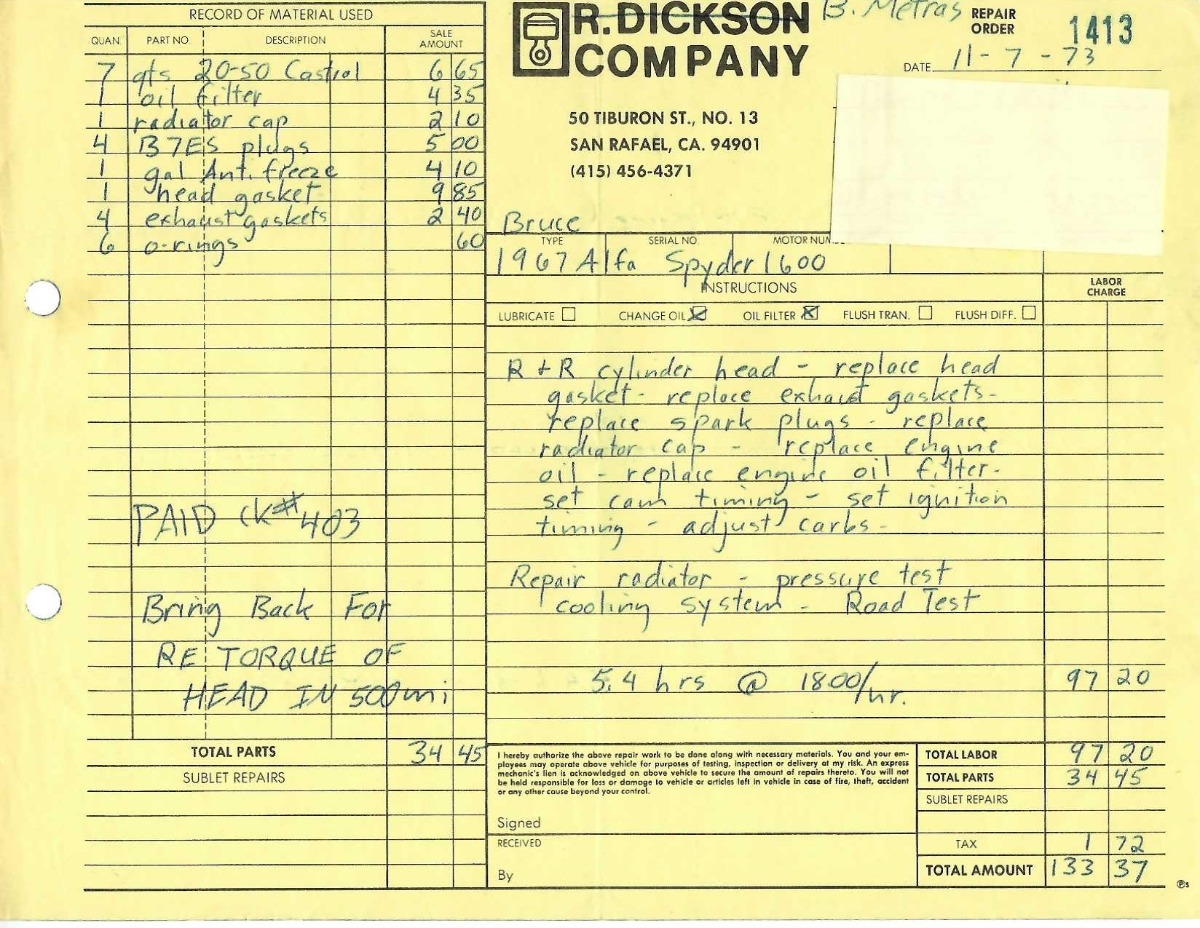 RECORD OF MATERIAL USED
QUAN. PART NO. DESCRIPTION SALE AMOUNT
7 qts 20-50 Castrol 6 65
1 oil filter 4 35
1 radiator cap 2 10
4 B7ES plugs 5 00
1 gal Ant.freeze 4 10
1 head gasket 9 85
4 exhaust gaskets 2 40
6 o-rings 60
PAID CK# 403
Bring Back For
RE TORQUE OF
HEAD IN 500 mi
TOTAL PARTS 34 45
SUBLET REPAIRS
R. DICKSON COMPANY
B. Metras
REPAIR ORDER 1413
DATE 11-7-73
50 TIBURON ST., NO. 13
SAN RAFAEL, CA. 94901
(415) 456-4371
Bruce
TYPE SERIAL NO. MOTOR
1967 Alfa Spyder 1600
INSTRUCTIONS LABOR CHARGE
LUBRICATE CHANGE OIL OIL FILTER FLUSH TRAN. FLUSH DIFF.
R + R cylinder head - replace head
gasket - replace exhaust gaskets -
replace spark plugs - replace
radiator cap - replace engine
oil - replace engine oil filter -
set cam timing - set ignition
timing - adjust carbs -
Repair radiator - pressure test
cooling system - Road Test
5.4 hrs @ 1800/hr. 97 20
I hereby authorize the above repair work to be done along with necessary materials. You and your em-
ployees may operate above vehicle for purposes of testing, inspection or delivery at my risk. An express
mechanic's lien is acknowledged on above vehicle to secure the amount of repairs thereto. You will not
be held responsible for loss or damage to vehicle or articles left in vehicle in case of fire, theft, accident
or any other cause beyond your control.
Signed
RECEIVED
By
TOTAL LABOR 97 20
TOTAL PARTS 34 45
SUBLET REPAIRS
TAX 1 72
TOTAL AMOUNT 133 37